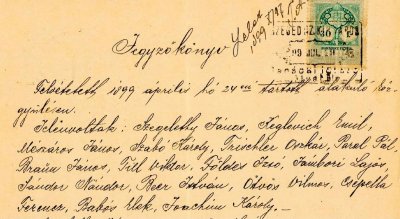 Jegyzőkönyv
Felvétetett 1899 április hó 24-én tartott alakuló köz-
gyűlésen.
Jelenvoltak: Szegeletky János, Keglovich Emil,
Mészáros János, Szabó Károly, Trischler Oszkár, Parel Pál,
Braun János, Till Viktor, Földes Izsó, Zombori Lajos,
Sándor Nándor, Beer István, Ötvös Vilmos, Csepella
Ferencz, Babós Elek, Joachim Károly.—